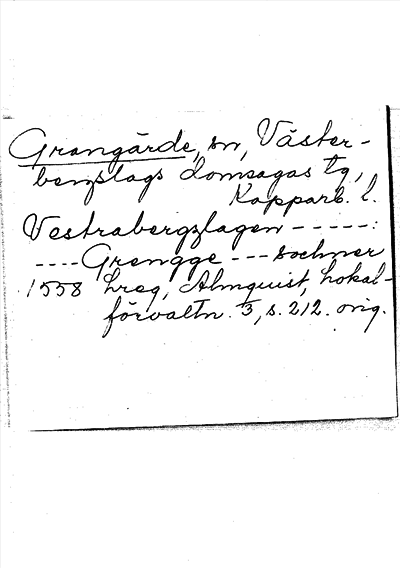 Grangärde, sn, Väster-
bergslags domsagas tg,
Kopparb. l.
Vestrabergslagen -----:
---- Grengge --- sochner
1558 Lreg, Almquist, Lokal-
förvaltn. 3, s. 212. orig.